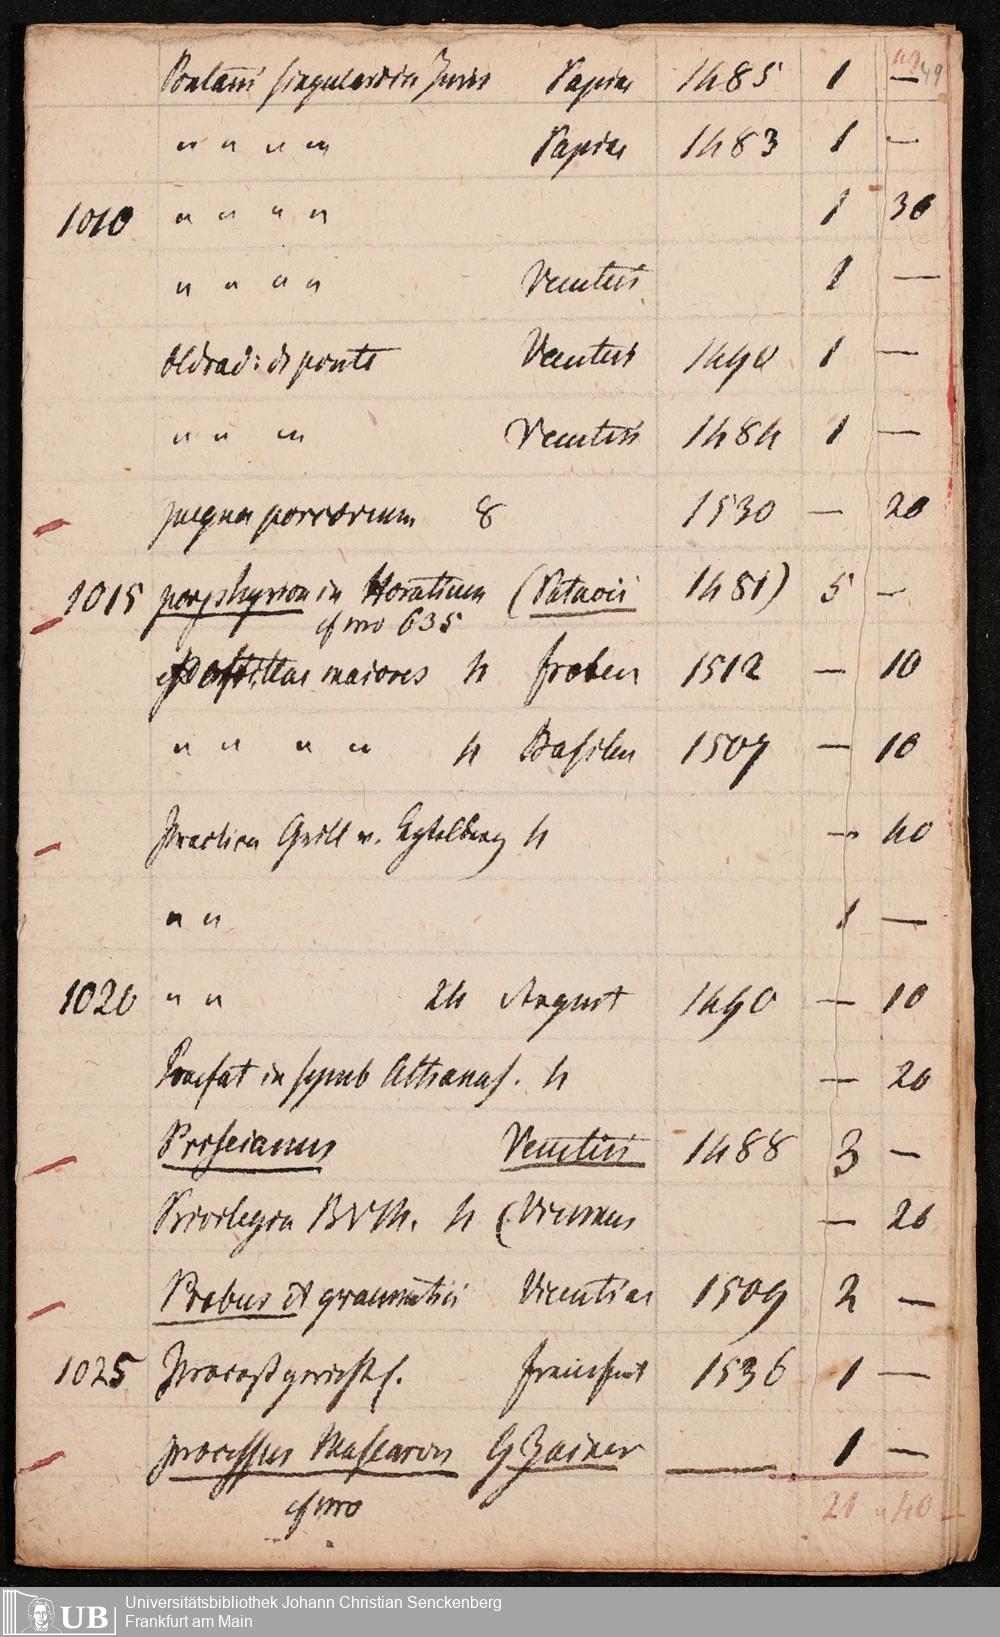 49
Pontani singularia Juris Papiae 1485 1 —
" " " " Papiae 1483 1 —
1010 " " " " 1 30
" " " " Venetiis 1 —
Oldrad: de ponte Venetiis 1490 1 —
" " " Venetiis 1484 1 —
pugna porcorum 8 1530 — 20
1015 porphyrion in Horatium (Patavii 1481) 5 —
cf nro 635
postillae maiores 4 Froben 1512 — 10
" " " " 4 Basileae 1507 — 10
Practica 4 — 40
" " 1 —
1020 " " 24 August 1490 — 10
Praefat in symb Athanas. 4 — 20
Priscianus Venetiis 1488 3 —
Privilegia BVM. 4 (Viennae — 20
Probus et grammatici Vicentiae 1509 2 —
1025 Frankfurt 1536 1 —
processus Mascaron G Zainer — 1 —
cf nro
21 " 40
Universitätsbibliothek Johann Christian Senckenberg
Frankfurt am Main
UB